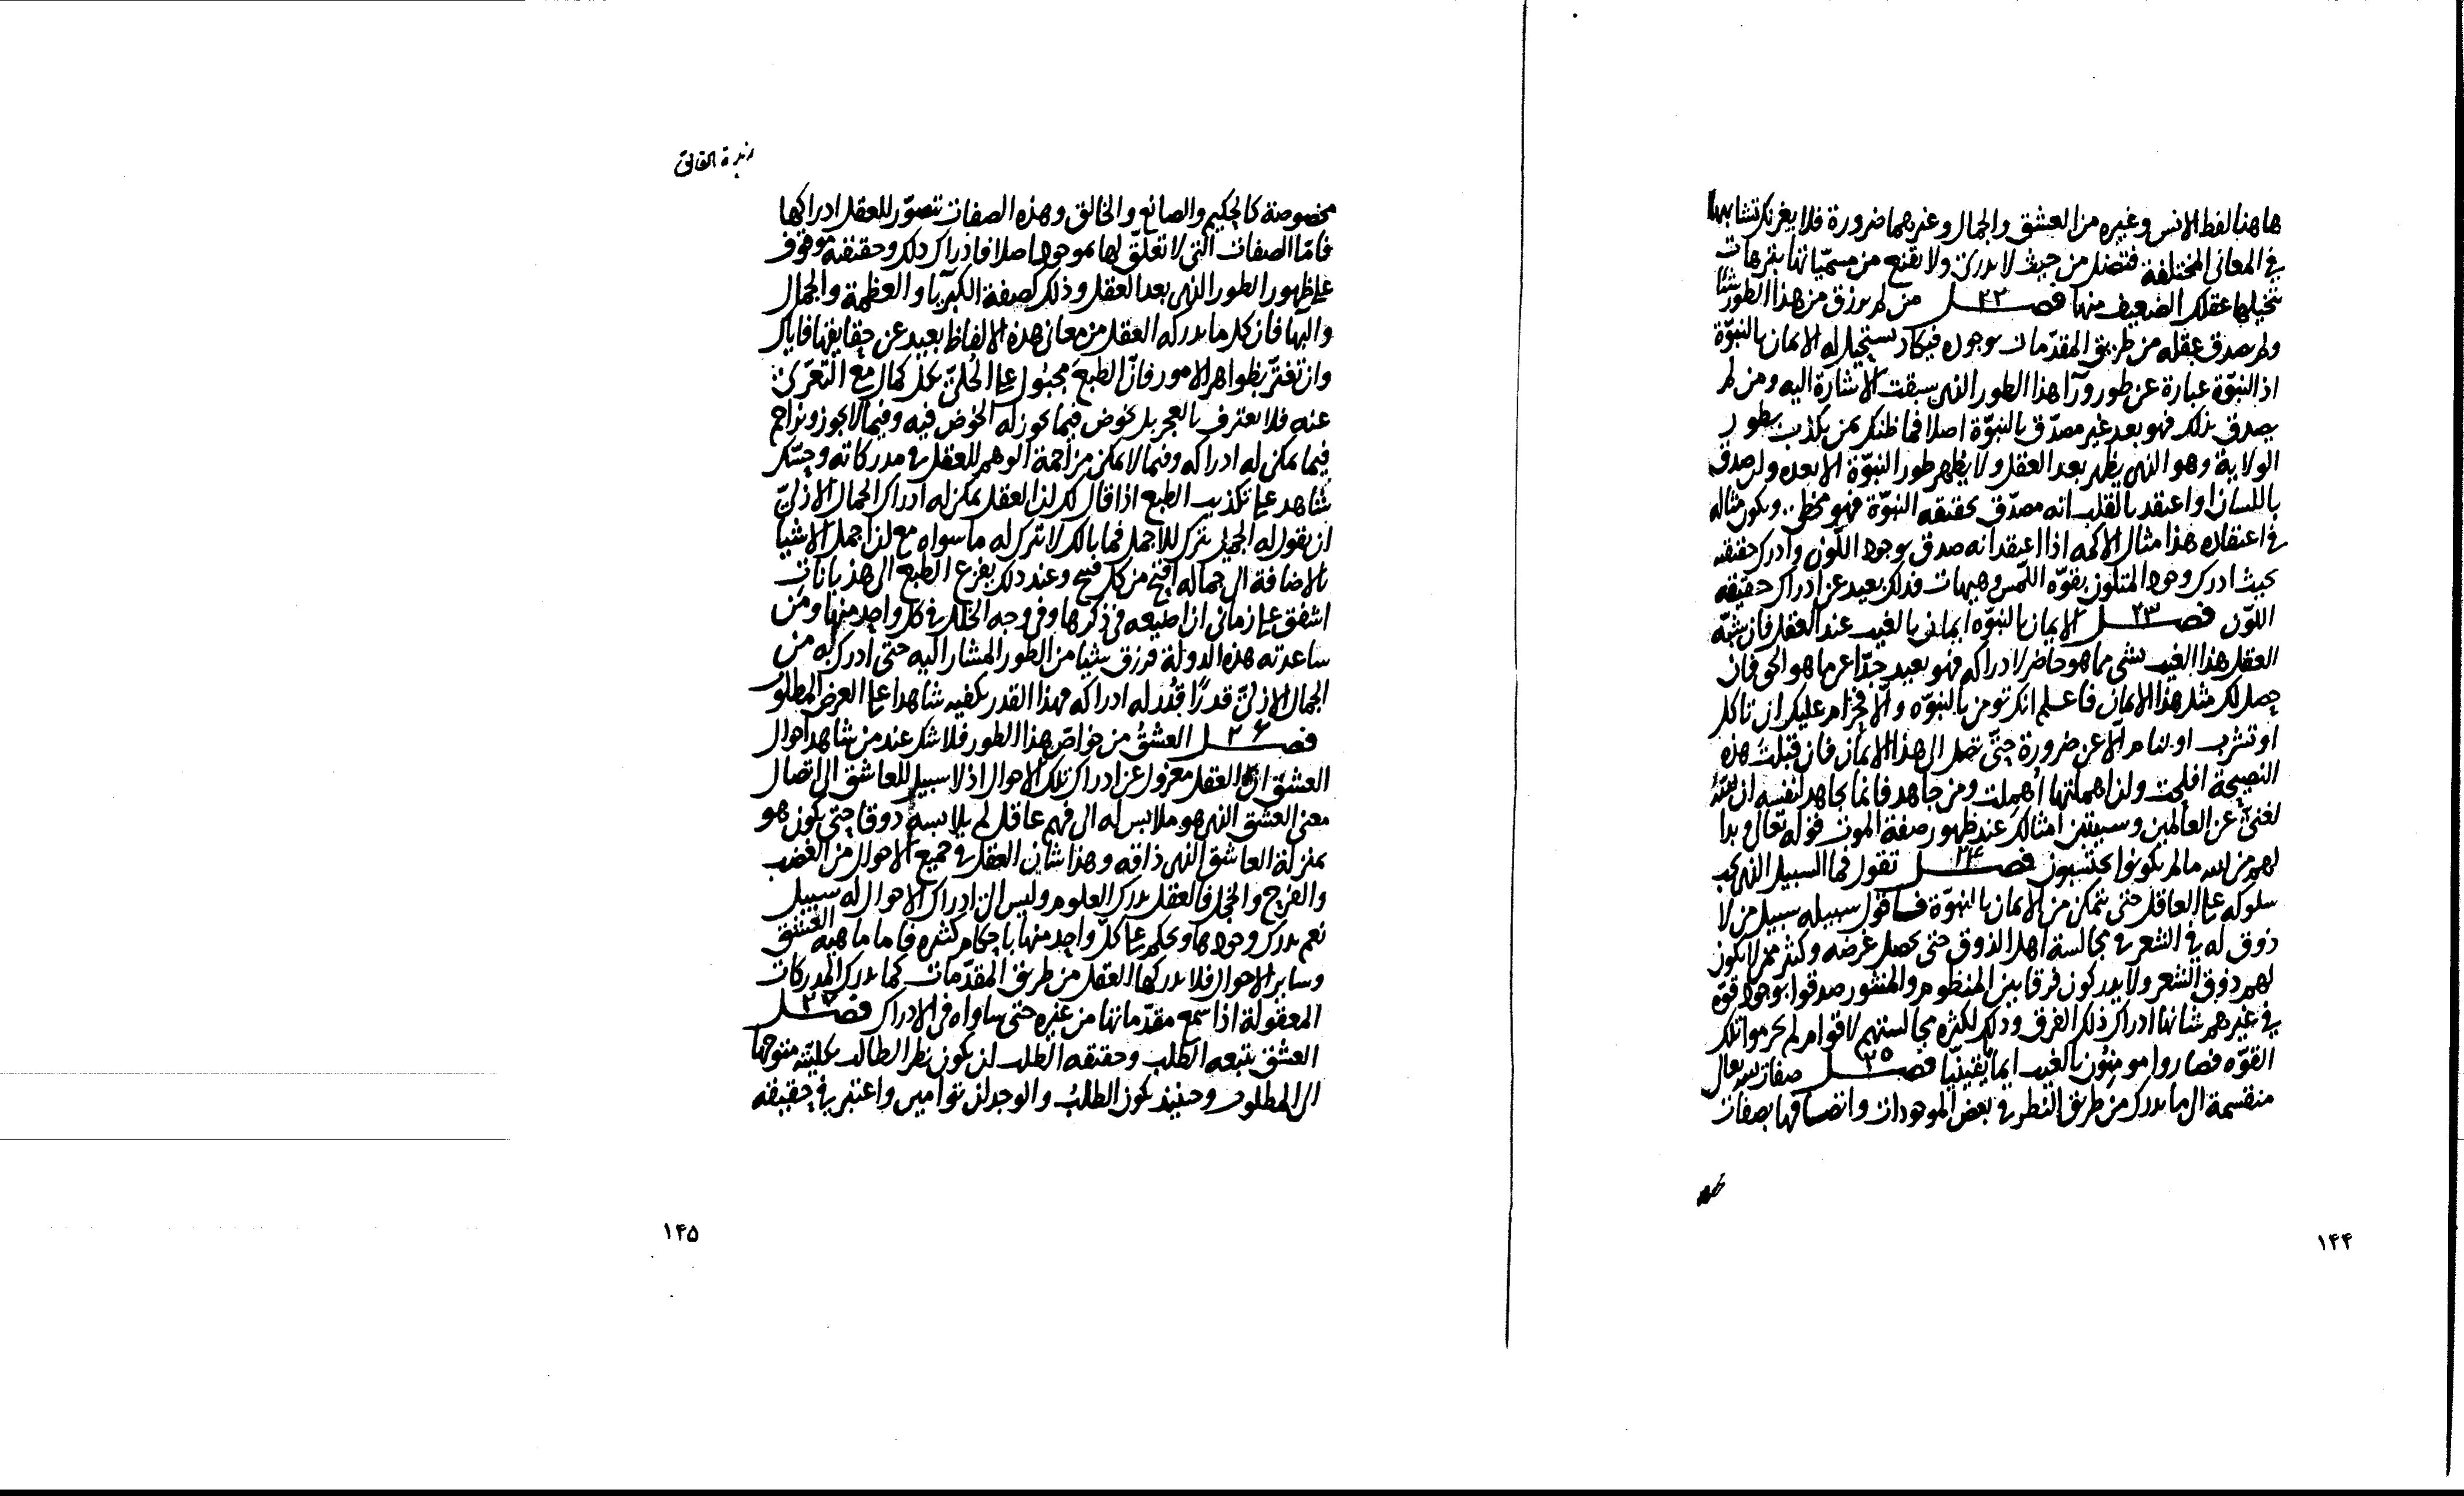 هاهنا لفظ الانس وغيره من العشق والجمال وغيرهما ضرورة فلا يغرنك تشابهها
في المعاني المختلفة فتضل من حيث لا تدري ولا تقنع من مسمياتها بترهات
تتخيلها عقلك الضعيف منها فصل ٢٢ من لم يرزق من هذا الطور شيا
ولم يصدق عقله من طريق المقدمات بوجوده فيكاد يستحيل له الايمان بالنبوّة
اذ النبوّة عبارة عن طور ورآ هذا الطور الذي سبقت الاشارة اليه ومن لم
يصدق بذلك فهو بعد غير مصدّق بالنبوّة اصلا فما ظنك بمن يكذب بطور
الولاية وهو الذي يظهر بعد العقل ولا يظهر طور النبوّة الا بعده ولو صدق
باللسان واعتقد بالقلب انه مصدّق بحقيقة النبوّة فهو مخطئ ويكون مثاله
في اعتقاده هذا مثال الاكمه اذا اعتقد انه صدق بوجود اللون وادرك حقيقته
بحيث ادرك وجود المتلون بقوّة اللمس وهيهات فذلك بعيد عن ادراك حقيقة
اللوّن فصل ٢٣ الايمان بالنبوّة ايمان بالغيب عند العقل فان شبّه
العقل هذا الغيب بشي مما هو حاضر لادراكه فهو بعيد جدّا عن ما هو الحق فان
حصل لك مثل هذا الايمان فاعلم انك تومن بالنبوّة والا فحرام عليك ان تاكل
او تشرب او تنام الا عن ضرورة حتّى تصل الى هذا الايمان فان قبلت هذه
النصيحة افلحت ولن اهملتها اُهملت ومن جاهد فانما يجاهد لنفسه ان الله
لغنيّ عن العالمين وسيتبين امثالك عند ظهور صفة الموت قوله تعالى وبدا
لهم من الله ما لم يكونوا يحتسبون فصل ٢٤ تقول فما السبيل الذي يجب
سلوكه على العاقل حتى يتمكن من الايمان بالنبوّة فاقول سبيله سبيل من لا
ذوق له في الشعر في مجالسة اهل الذوق حتى يحصل غرضه وكثير ممن لا يكون
لهم ذوق الشعر ولا يدركون فرقا بين المنظوم والمنثور صدقوا بوجود قوّة
في غيرهم شانها ادراك ذلك الفرق وذلك لكثرة مجالستهم لاقوام لم يحرموا تلك
القوّة فصاروا مومنون بالغيب ايما يقينيّا فصل ٢٥ صفات الله تعالى
منقسمة الى ما يدرك من طريق النظر في بعض الموجودات واتصافها بصفات
١٤٤
زبدة الحقائق
مخصوصة كالحكيم والصانع والخالق وهذه الصفات تتصوّر للعقل ادراكها
فامّا الصفات التي لا تعلّق لها بموجود اصلا فادراك ذلك وحقيقته موقوف
على ظهور الطور الذي بعد العقل وذلك كصفة الكبريآ والعظمة والجمال
والبها فان كل ما يدركه العقل من معاني هذه الالفاظ بعيد عن حقايقها فاياك
وان تغترّ بظواهر الامور فانّ الطبع مجبُول على التحلّي بكل كمال مع التعرّي
عنه فلا يعترف بالعجز بل يخوض فيما يجوز له الخوض فيه وفيما لا يجوز ويزاحم
فيما يمكن له ادراكه وفيما لا يمكن مزاحمة الوهم للعقل في مدركاته وحسبك
شاهدا على تكذيب الطبع اذا قال لك لن العقل يمكن له ادراك الجمال الازليّ
ان تقول له الجميل يترك للاجمل فما بالك لا تترك له ما سواه مع لن اجمل الاشيا
بالاضافة الى جماله اقبح من كل قبيح وعند ذلك يفزع الطبع الى هذيانات
اشفق على زماني ان اضيعه في ذكرها وفي وجه الخلل في كل واحد منها ومن
ساعدته هذه الدولة فرزق شيا من الطور المشار اليه حتى ادرك به من
الجمال الازليّ قدرًا قُدر له ادراكه فهذا القدر يكفيه شاهدا على الغرض المطلوب
فصل ٢٦ العشقُ من خواصّ هذا الطور فلا شك عند من شاهد احوال
العشق انّ العقل معزول عن ادراك تلك الاحوال اذ لا سبيل للعاشق الى اتصال
معنى العشق الذي هو ملابس له الى فهم عاقل لم يلابسه ذوقا حتى يكون هو
بمنزلة العاشق الذي ذاقه وهذا شان العقل في جميع الاحوال من الغضب
والفرح والخجل فالعقل يدرك العلوم وليس الى ادراك الاحوال له سبيل
نعم يدرك وجودها ويحكم على كلّ واحد منها باحكام كثيره فاما ماهية العشق
وساير الاحوال فلا يدركها العقل من طريق المقدّمات كما يدرك المدركات
المعقولة اذا سمع مقدّماتها من غيره حتى ساواه في الادراك فصل ٢٧
العشق يتبعه الطلب وحقيقة الطلب لن يكون نظر الطالب بكليّته متوجها
الى المطلوب وحينيذ يكون الطلبُ والوجدان توامين واعتبر في حقيقة
١٤٥